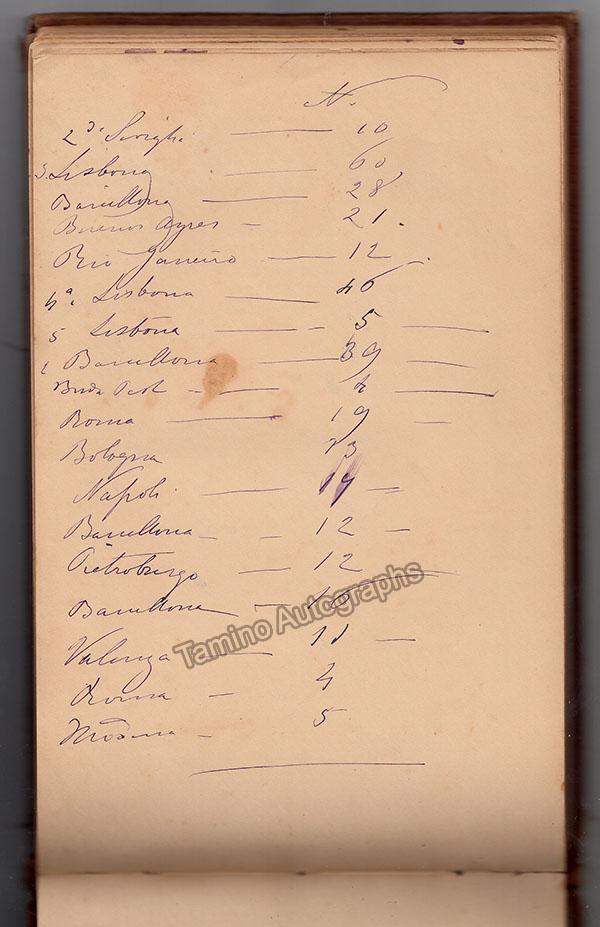 N.
2da Siviglia — 10
3. Lisbona — 60
Barcellona — 28
Buenos Ayres — 21.
Rio Janeiro — 12
4a. Lisbona — 46
5 Lisbona — 5 —
Barcellona — 39 —
Buda Pest —
Roma — 19 —
Bologna 13
Napoli —
Barcellona — 12 —
Pietroburgo — 12 —
Barcellona — 16
Valenza — 11 —
Roma — 4
Modena — 5
Tamino Autographs